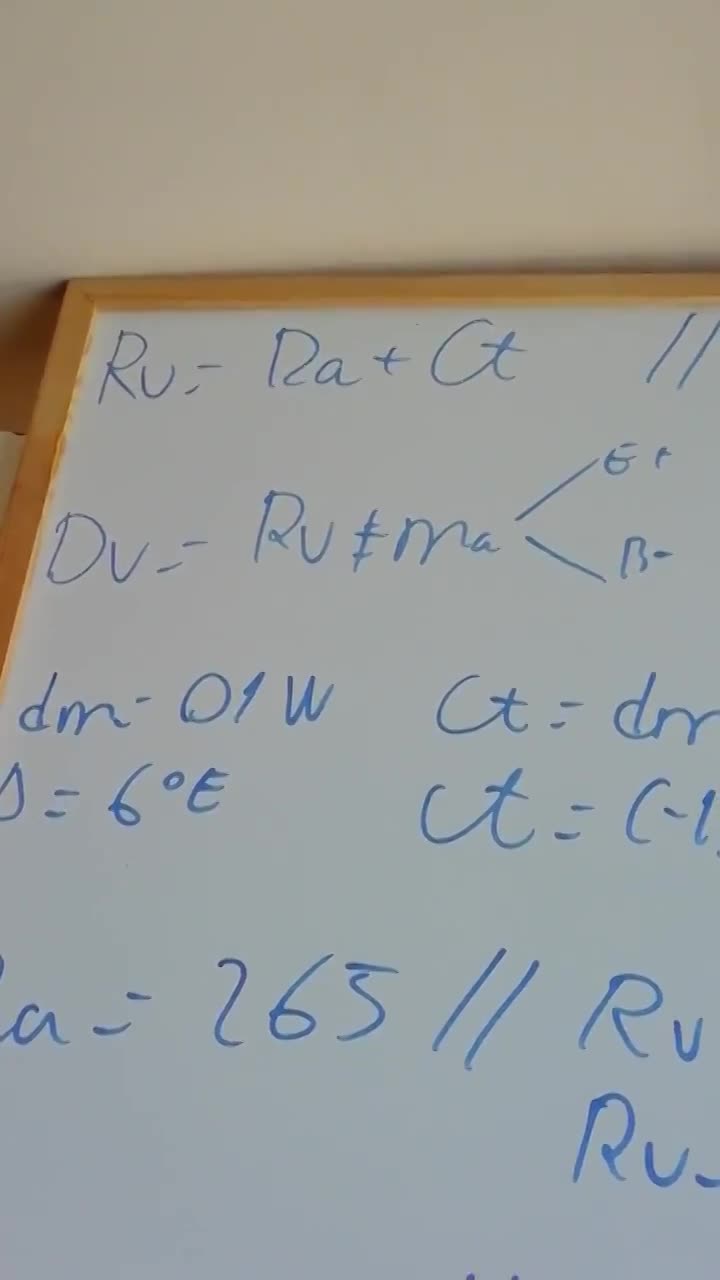 Rv = Ra + Ct //
Dv = Rv ± Ma E+
B-
dm = 01 W Ct = dm
Δ = 6°E Ct = (-1
a = 265 // Rv
Rv =